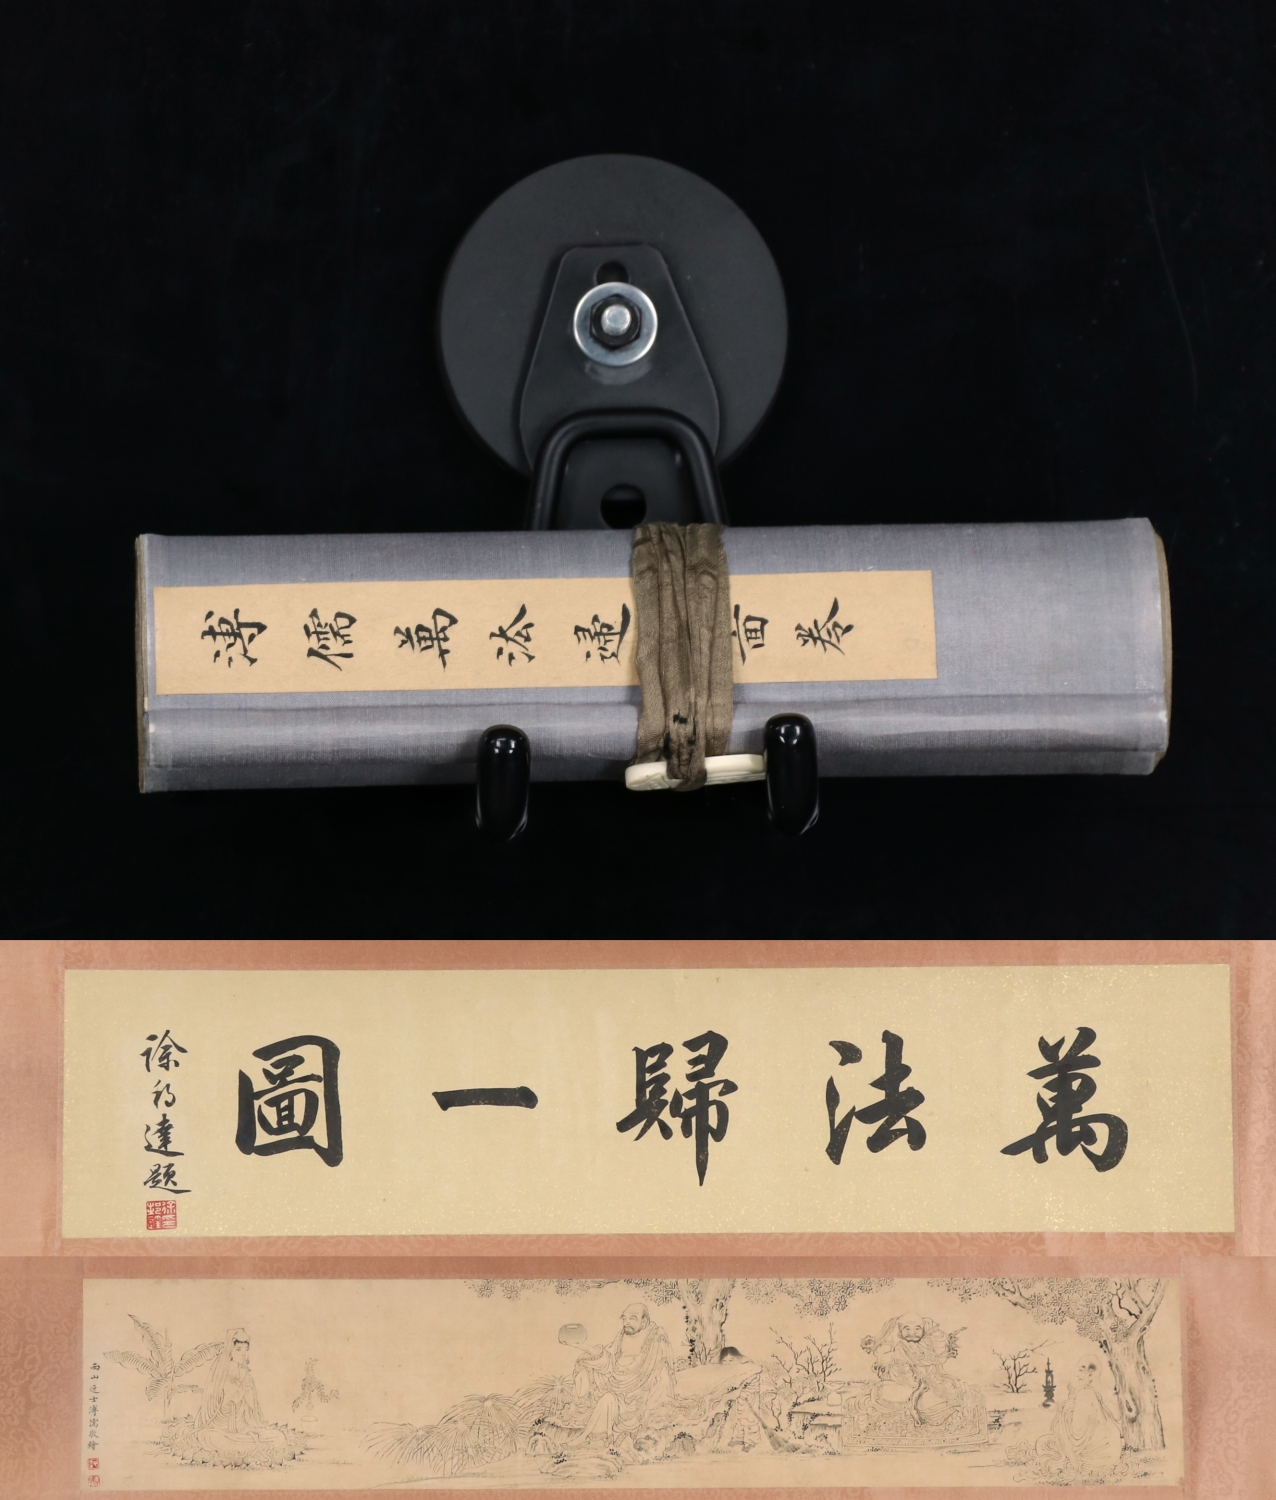 溥儒萬法歸 画卷
萬法歸一圖
達題
西山逸士溥儒敬繪